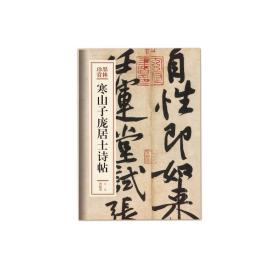 墨林
珍赏
寒山子庞居士诗帖
自性即如来
任運堂試張